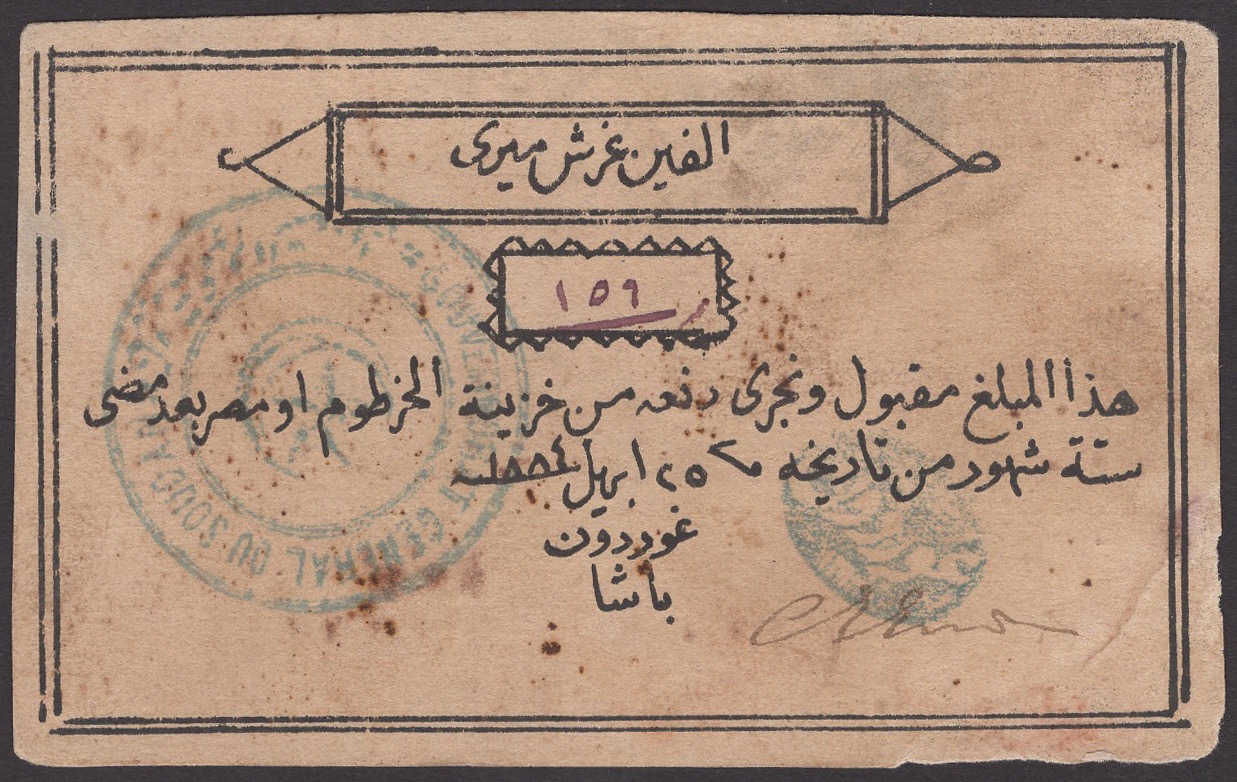 الفين غرش ميرى
١٥٩
هذا المبلغ مقبول ونجرى دفعه من خزينة الخرطوم او مصر بعد مضى
ستة شهور من تاريخه ٢٥ ابريل ١٨٨٤سنه
غوردون
باشا
GOUVERNORAT GENERAL DU SOUDAN